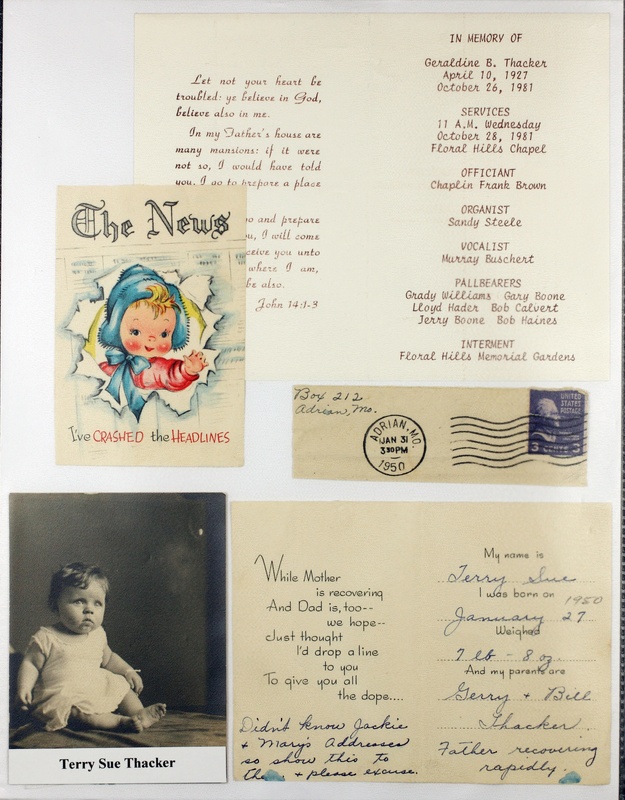 Let not your heart be
troubled: ye believe in God,
believe also in me.
In my Father's house are
many mansions: if it were
not so, I would have told
you. I go to prepare a place
go and prepare
u, I will come
ceive you unto
where I am,
be also.
John 14:1-3
IN MEMORY OF
Geraldine B. Thacker
April 10, 1927
October 26, 1981
SERVICES
11 A.M. Wednesday
October 28, 1981
Floral Hills Chapel
OFFICIANT
Chaplin Frank Brown
ORGANIST
Sandy Steele
VOCALIST
Murray Buschert
PALLBEARERS
Grady Williams Gary Boone
Lloyd Hader Bob Calvert
Jerry Boone Bob Haines
INTERMENT
Floral Hills Memorial Gardens
The News
I've CRASHED the HEADLINES
Box 212
Adrian, Mo.
ADRIAN, MO.
JAN 31
3 30 PM
1950
UNITED
STATES
POSTAGE
3 CENTS 3
Terry Sue Thacker
While Mother
is recovering
And Dad is, too--
we hope--
Just thought
I'd drop a line
to you
To give you all
the dope....
Didn't know Jackie
& Mary's Addresses
so show this to
& please excuse.
My name is
Terry Sue
I was born on
1950
January 27
Weighed
7 lb - 8 oz.
And my parents are
Gerry + Bill
Thacker.
Father recovering
rapidly.